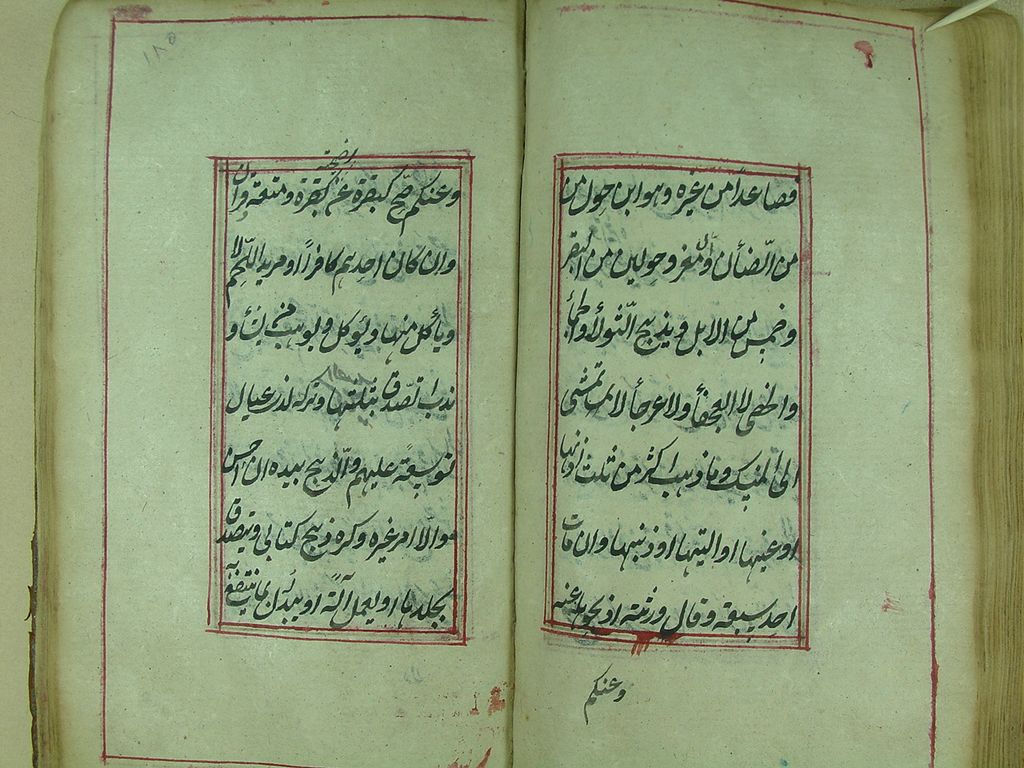 فصاعدا من غيره وهو ابن حول من
من الضأن والمعز وحولين من البقر
وخمس من الابل ويذبح الثولأ والجمأ
والخصى لا العجفأ والعرجأ لا تمشى
الى المنسك وما ذهب اكثر من ثلث اذنها
او عينها او اليتها او ذنبها وان مات
احد سبعة وقال ورثته اذبحوها عنه
وعنكم
١١٥
وعنكم صح كبقرة عن اضحية ومتعة وقران
وان كان احدهم كافرا او مريد اللحم لا
ويأكل منها ويؤكل ويوهب من يشأ و
ندب تصدق بثلثها وتركه لذى عيال
توسعة عليهم والذبح بيده ان احسن
والا امر غيره وكره ذبح كتابى ويتصدق
بجلدها او يعمل آلة او يبدل بما ينتفع به